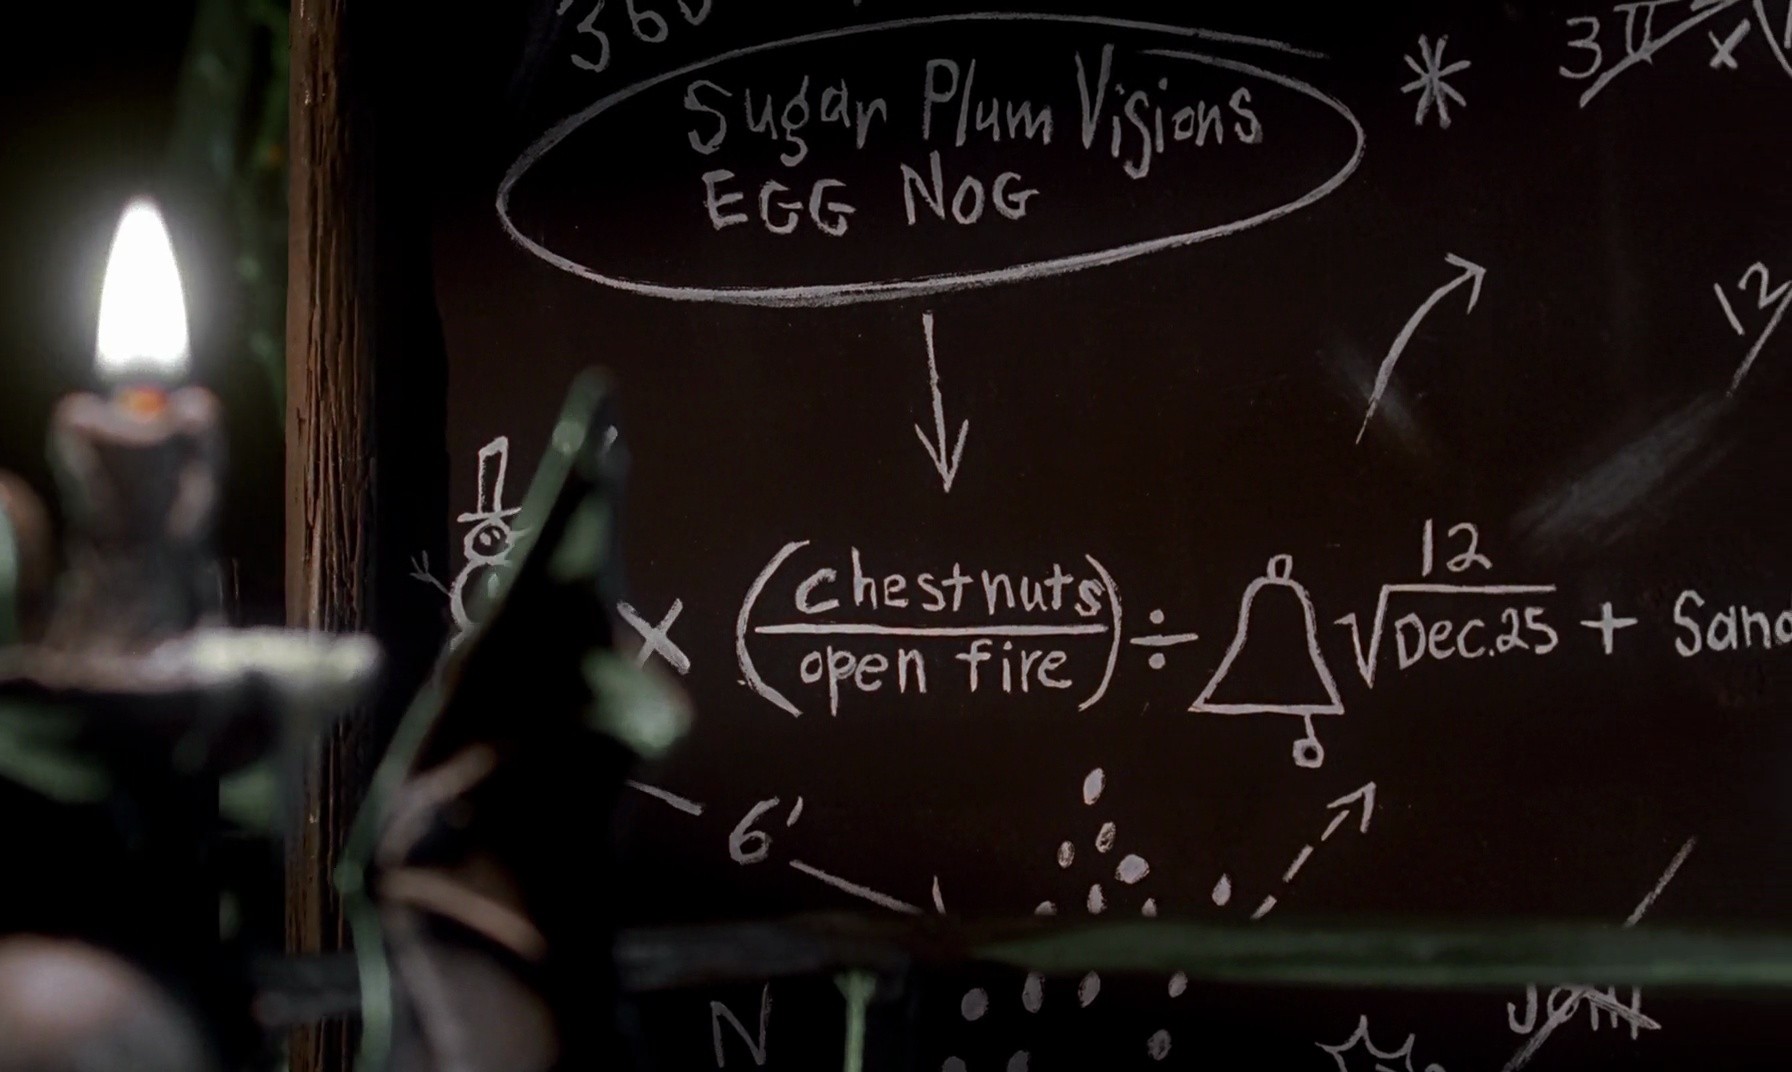 360
Sugar Plum Visions
EGG NOG
3π x √
12
x (chestnuts / open fire) ÷ √12 / Dec.25 + San
6'
N